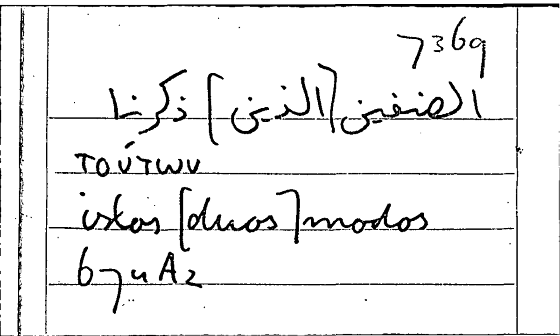 7369
الصنفين [الذين] ذكرنا
τούτων
istos [duos] modos